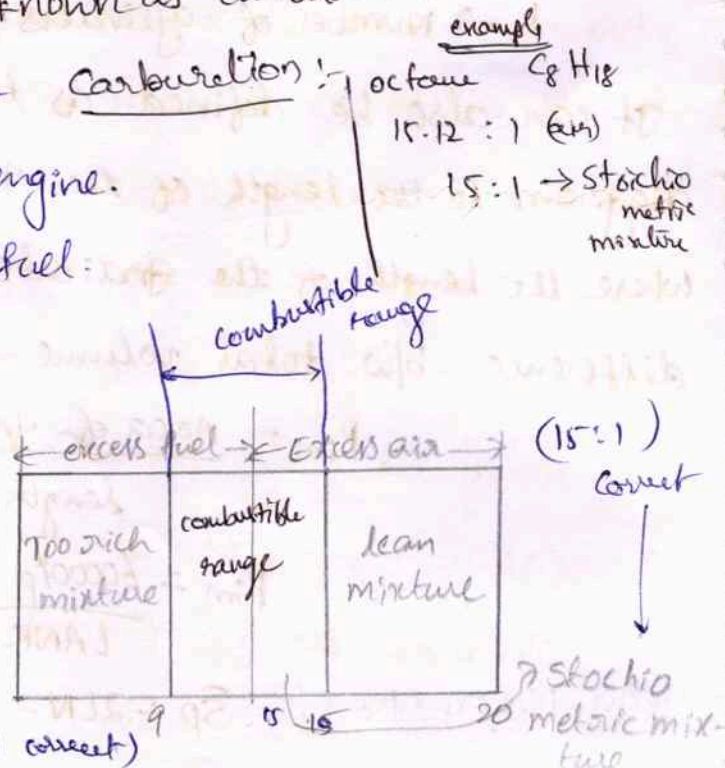 known as
example
Carburetion :- octane C8 H18
15.12 : 1 (air)
15 : 1 → Stoichio
metric
mixture
engine.
fuel:
combustible
range
excess fuel Excess air
(15:1)
Correct
Too rich
mixture
combustible
range
lean
mixture
9 15 20
Stochio
metric mix-
ture
correct)